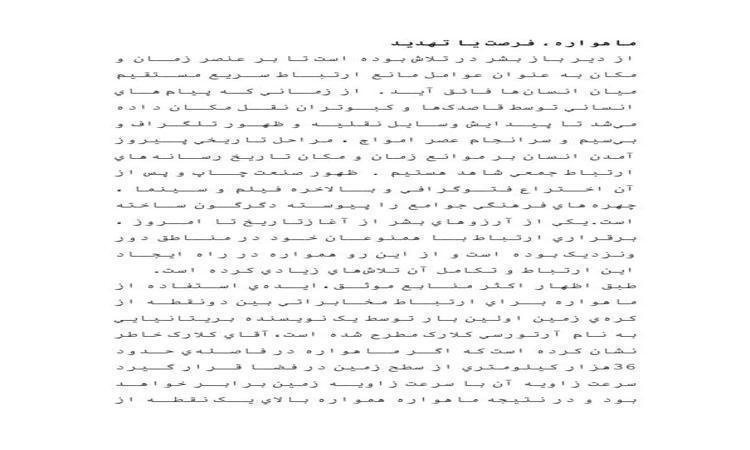 ماهواره، فرصت یا تهدید
از دیر باز بشر در تلاش بوده است تا بر عنصر زمان و
مکان به عنوان عوامل مانع ارتباط سریع مستقیم
میان انسان‌ها فائق آید. از زماني که پیام هاي
انساني توسط قاصدک‌ها و کبوتران نقل مکان داده
می‌شد تا پیدایش وسایل نقلیه و ظهور تلگراف و
بی‌سیم و سرانجام عصر امواج ، مراحل تاریخي پیروز
آمدن انسان بر موانع زمان و مکان تاریخ رسانه هاي
ارتباط جمعي شاهد هستیم . ظهور صنعت چاپ و پس از
آن اختراع فتوگرافي و بالاخره فیلم و سینما ،
چهره هاي فرهنگي جوامع را پیوسته دگرگون ساخته
است.یکي از آرزوهاي بشر از آغازتاریخ تا امروز ،
برقراري ارتباط با همنوعان خود در مناطق دور
ونزدیک بوده است و از این رو همواره در راه ایجاد
این ارتباط و تکامل آن تلاش‌هاي زیادي کرده است.
طبق اظهار اکثر منابع موثق،ایده‌ي استفاده از
ماهواره براي ارتباط مخابراتي بین دونقطه از
کره‌ي زمین اولین بار توسط یک نویسنده بریتانیایي
به نام آرتورسي کلارک مطرح شده است،آقاي کلارک خاطر
نشان کرده است که اگر ماهواره در فاصله‌ي حدود
36هزار کیلومتري از سطح زمین در فضا قرار گیرد
سرعت زاویه آن با سرعت زاویه زمین برابر خواهد
بود و در نتیجه ماهواره همواره بالاي یک نقطه از